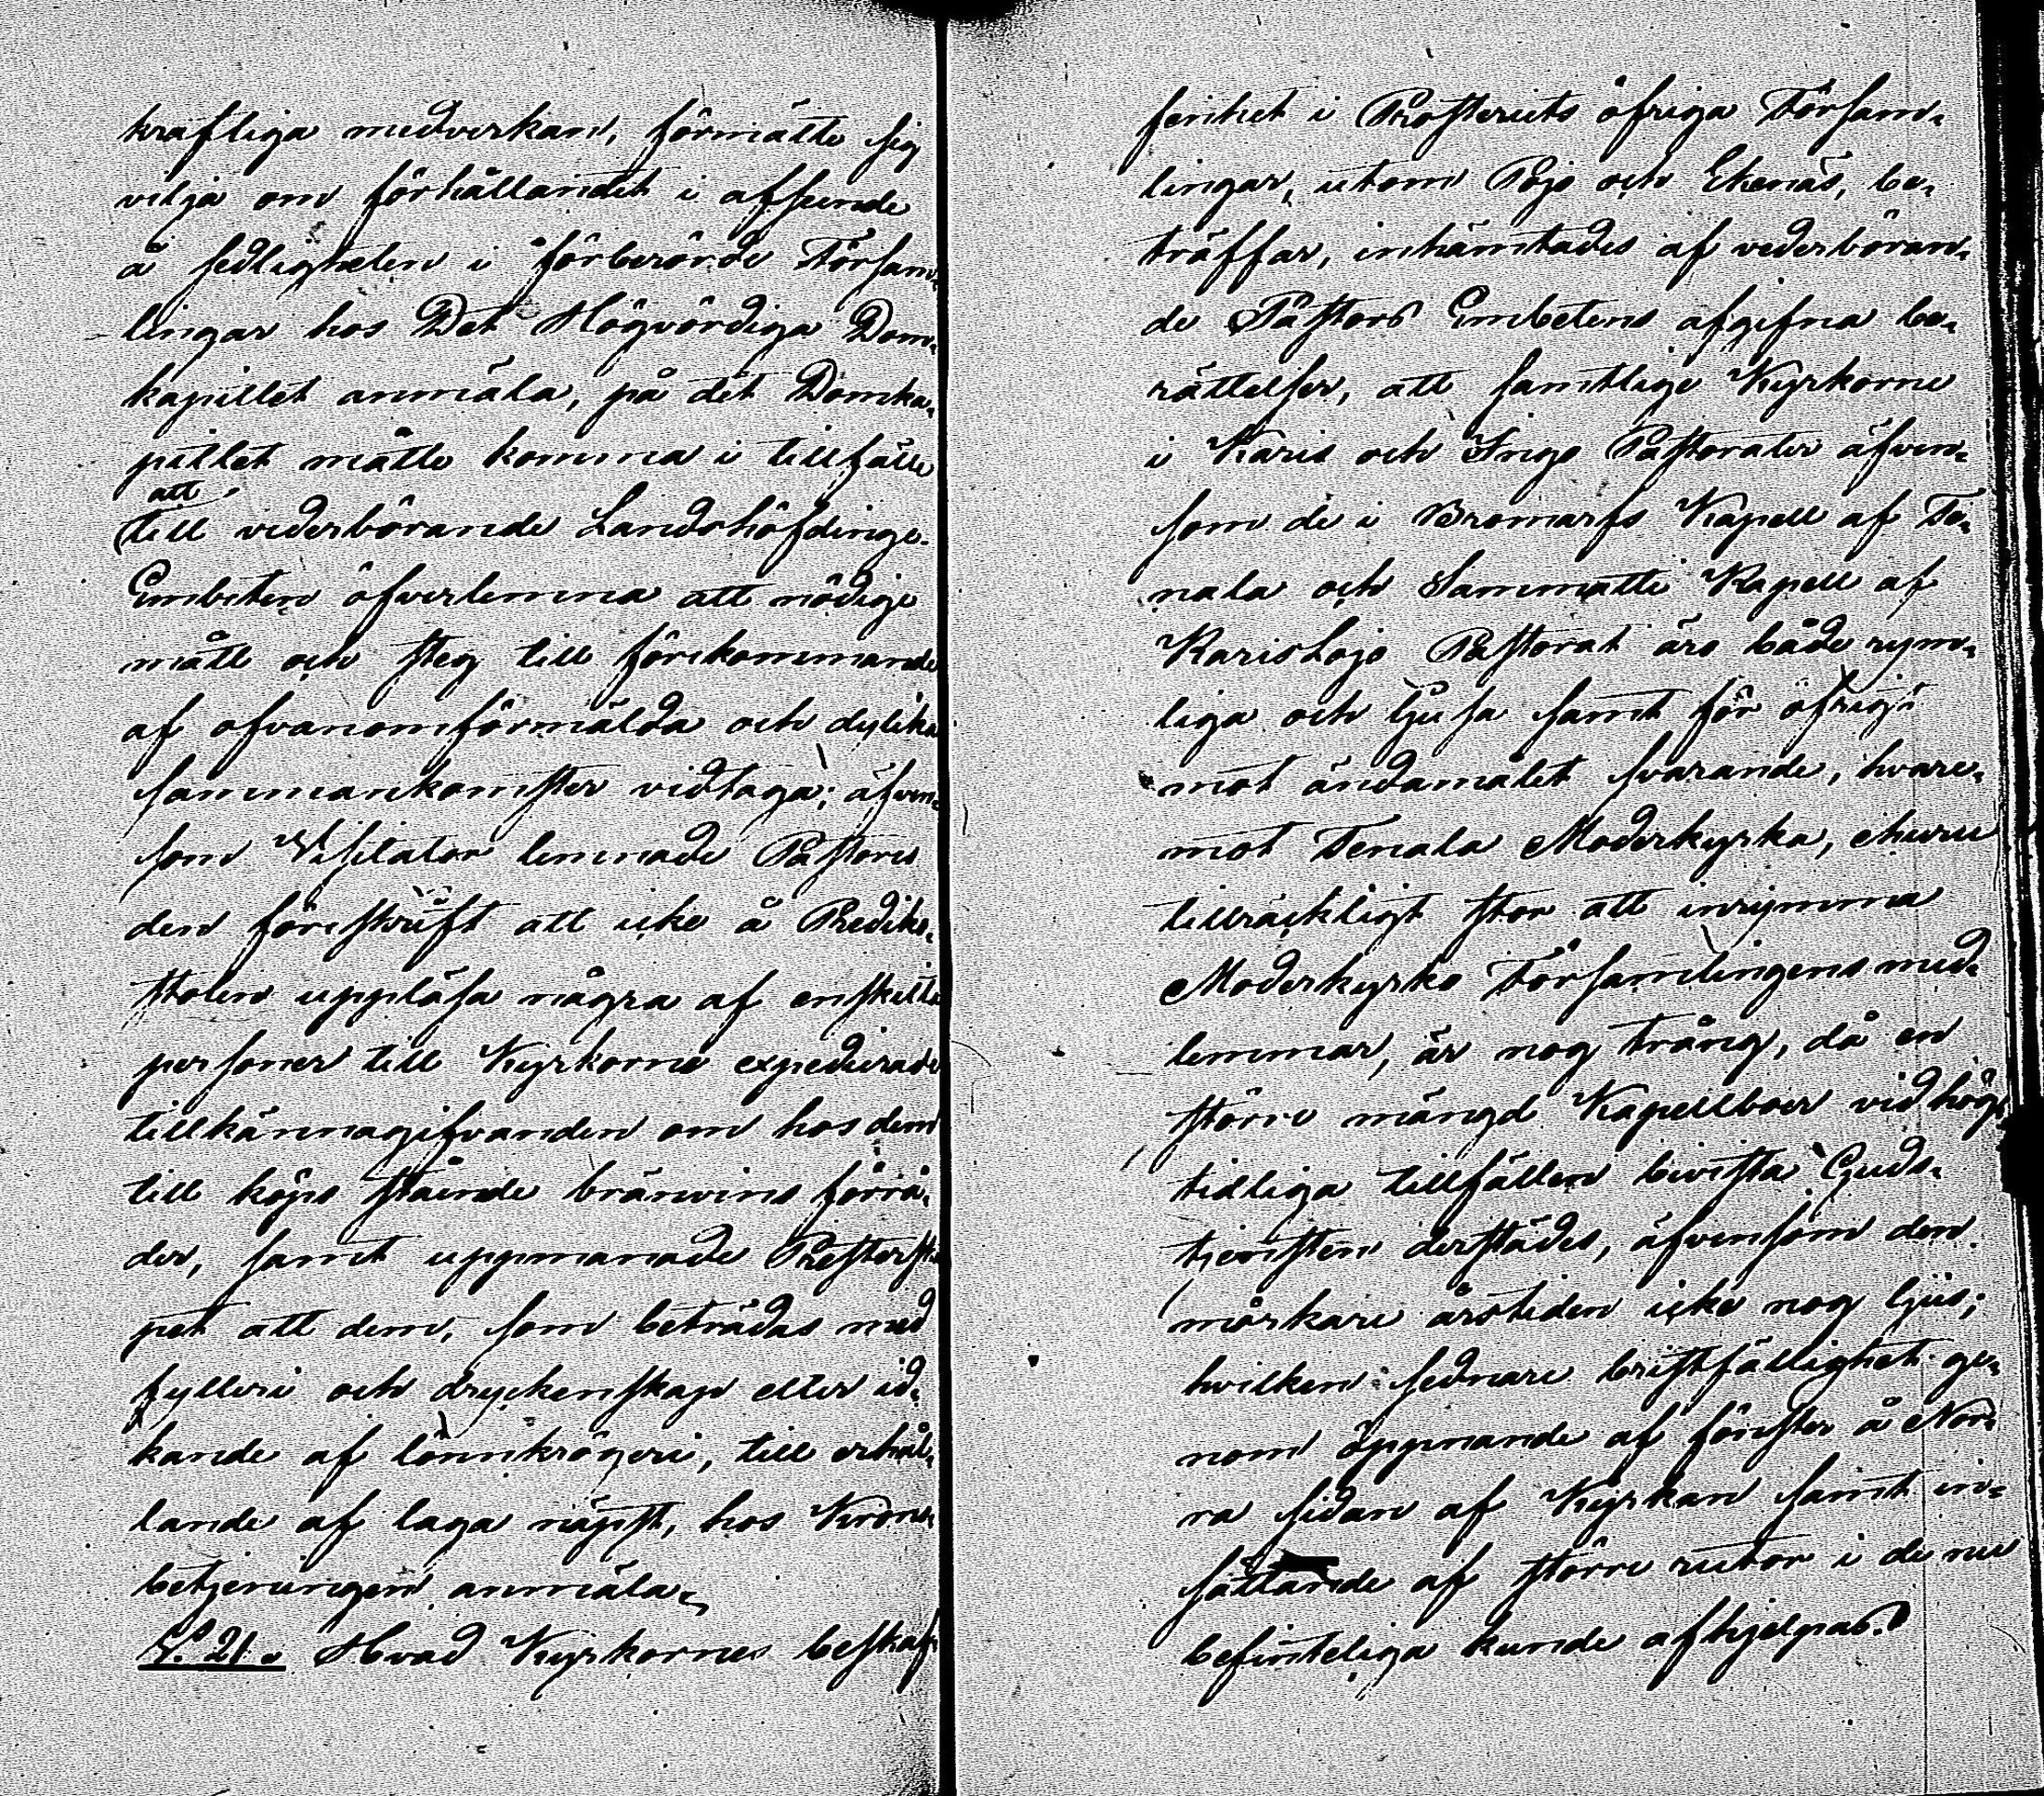 kraftiga medverkan, förmälte sig
vilja om förhållandet i afseende
å sedligheten i förberörde Försam-
lingar hos Det Högvördiga Dom-
kapitlet anmäla, på det Domka-
pitlet måtte komma i tillfälle
att
till vederbörande Landshöfdinge-
Embeten öfverlemna att nödige
mått och steg till förekommande
af ofvanomförmälda och dylika
sammankomster vidtaga; äfven-
som Visitator lemnade Pastores
den föreskrift att icke å Predik-
stolen uppläsa några af enskilte
personer till Kyrkorne expedierade
tillkännagifvanden om hos dem
till köps stående bränvins förrå-
der, samt uppmanade Presterska-
pet att dem, som beträdas med
fylleri och dryckenskap eller id-
kande af lönnkrögeri, till erhål-
lande af laga näpst, hos Krono-
betjeningen anmäla.
§. 21. Hvad Kyrkornes beskaf-
fenhet i Prosteriets öfriga Försam-
lingar, utom Pojo och Ekenäs, be-
träffar, inhämtades af vederböran-
de Pastors Embetens afgifna be-
rättelser, att samtlige Kyrkorne
i Karis och Ingo Pastorater äfven-
som de i Bromarfs Kapell af Te-
nala och Sammatti Kapell af
KarisLojo Pastorat äro både rym-
liga och ljusa samt för öfrigt
mot ändamålet svarande, hvare-
mot Tenala Moderkyrka, ehuru
tillräckligt stor att inrymma
Moderkyrko Församlingens med-
lemmar, är nog trång, då en
större mängd Kapellboer vid hög-
tidliga tillfällen bevista Guds-
tjensten derstädes, äfvensom den
mörkare årstiden icke nog ljus;
hvilken sednare bristfällighet ge-
nom öppnande af fönster å Nor-
ra sidan af Kyrkan samt in-
sättande af större rutor i de nu
befinteliga kunde afhjelpas.